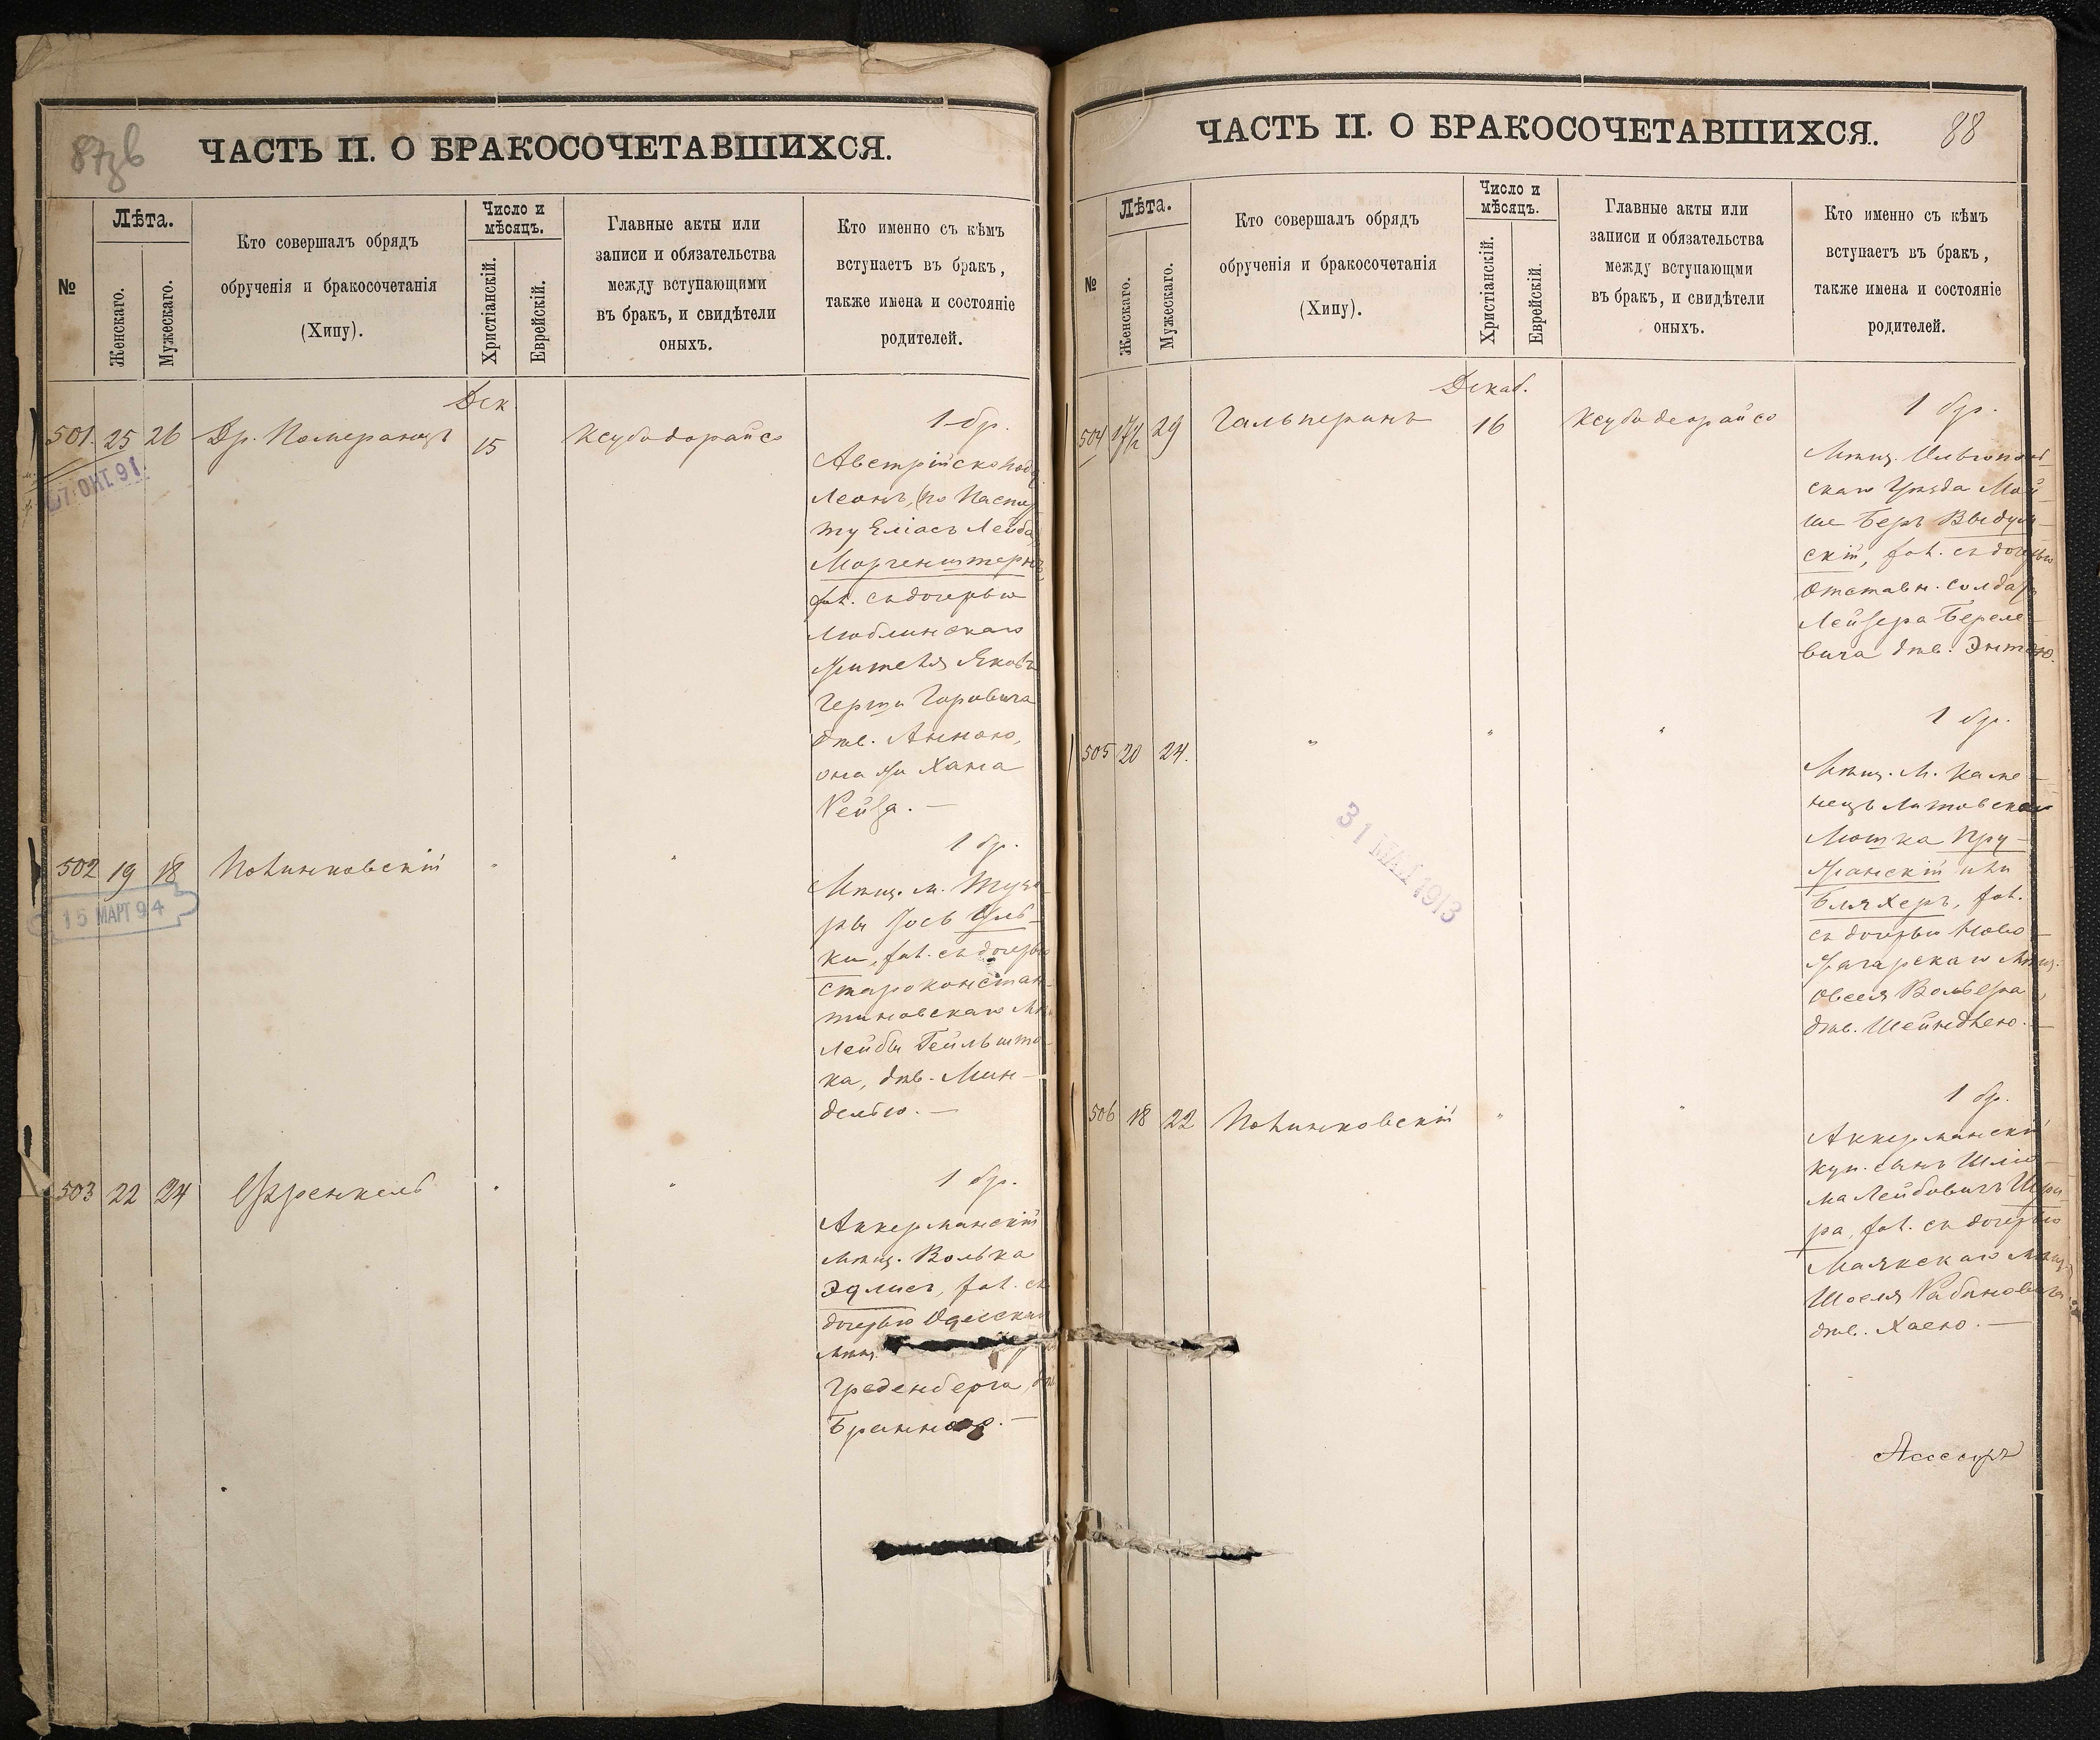 87об
ЧАСТЬ II. О БРАКОСОЧЕТАВШИХСЯ.
№
Лѣта.
Женскаго.
Мужескаго.
Кто совершалъ обрядъ
обрученія и бракосочетанія
(Хипу).
Число и
мѣсяцъ.
Христіанскій.
Еврейскій.
Главные акты или
записи и обязательства
между вступающими
въ бракъ, и свидѣтели
оныхъ.
Кто именно съ кѣмъ
вступаетъ въ бракъ,
также имена и состояніе
родителей.
Дек.
501. 25 26 Др. Померанцъ 15 Ксуба дорайсо
1 бр.
Австрійско под.
Леонъ, (по Паспор
ту Еліасъ Лейба)
Моргенштернъ,
хол. съ дочерью
Люблинскаго
жителя Яковъ
Герша Горовича
дѣв. Анною,
она же Хана
Рейза. —
27 ОКТ. 91
502 19 18 Полинковскій " "
15 МАРТ 94
1 бр.
Мѣщ. м.
ки, хол. съ дочерью
Староконстан-
тиновскаго Мѣщ.
Лейбы Гейльшто-
ка, дѣв. Мин-
делью. —
503 22 24 Френкель " "
1 бр.
Аккерманскій
мѣщ. Волька
Эдлисъ, хол. съ
дочерью Одесскаго
мѣщ.
Греденберга, дѣв.
Бранною. —
88
ЧАСТЬ II. О БРАКОСОЧЕТАВШИХСЯ.
№
Лѣта.
Женскаго.
Мужескаго.
Кто совершалъ обрядъ
обрученія и бракосочетанія
(Хипу).
Число и
мѣсяцъ.
Христіанскій.
Еврейскій.
Главные акты или
записи и обязательства
между вступающми
въ бракъ, и свидѣтели
оныхъ.
Кто именно съ кѣмъ
вступаетъ въ бракъ,
также имена и состояніе
родителей.
Декаб.
504 17½ 29 Гальперинъ 16 Ксуба деорайсо
1 бр.
Мѣщ. Ольгополь-
скаго Уѣзда Мой-
ше Беръ Выдум-
скій, хол. съ дочерью
отставн. солдата
Лейзера Береле-
вича дѣв. Энтою.
505 20 24. " " "
31 МАЯ 1913
1 бр.
Мѣщ. М. Каме-
нецъ Литовска
Мошка Пру-
жанскій или
Бляхеръ, хол.
съ дочерью Ново-
жагарскаго Мѣщ.
Овсея Вольера,
дѣв. Шейндлею. —
506 18 22 Полинковскій " "
1 бр.
Аккерманскій
куп. сынъ Шлио-
ма Лейбовичъ
ра, хол. съ дочерью
Маякскаго Мѣщ.
Шоеля Рабиновича
дѣв. Хаею. —